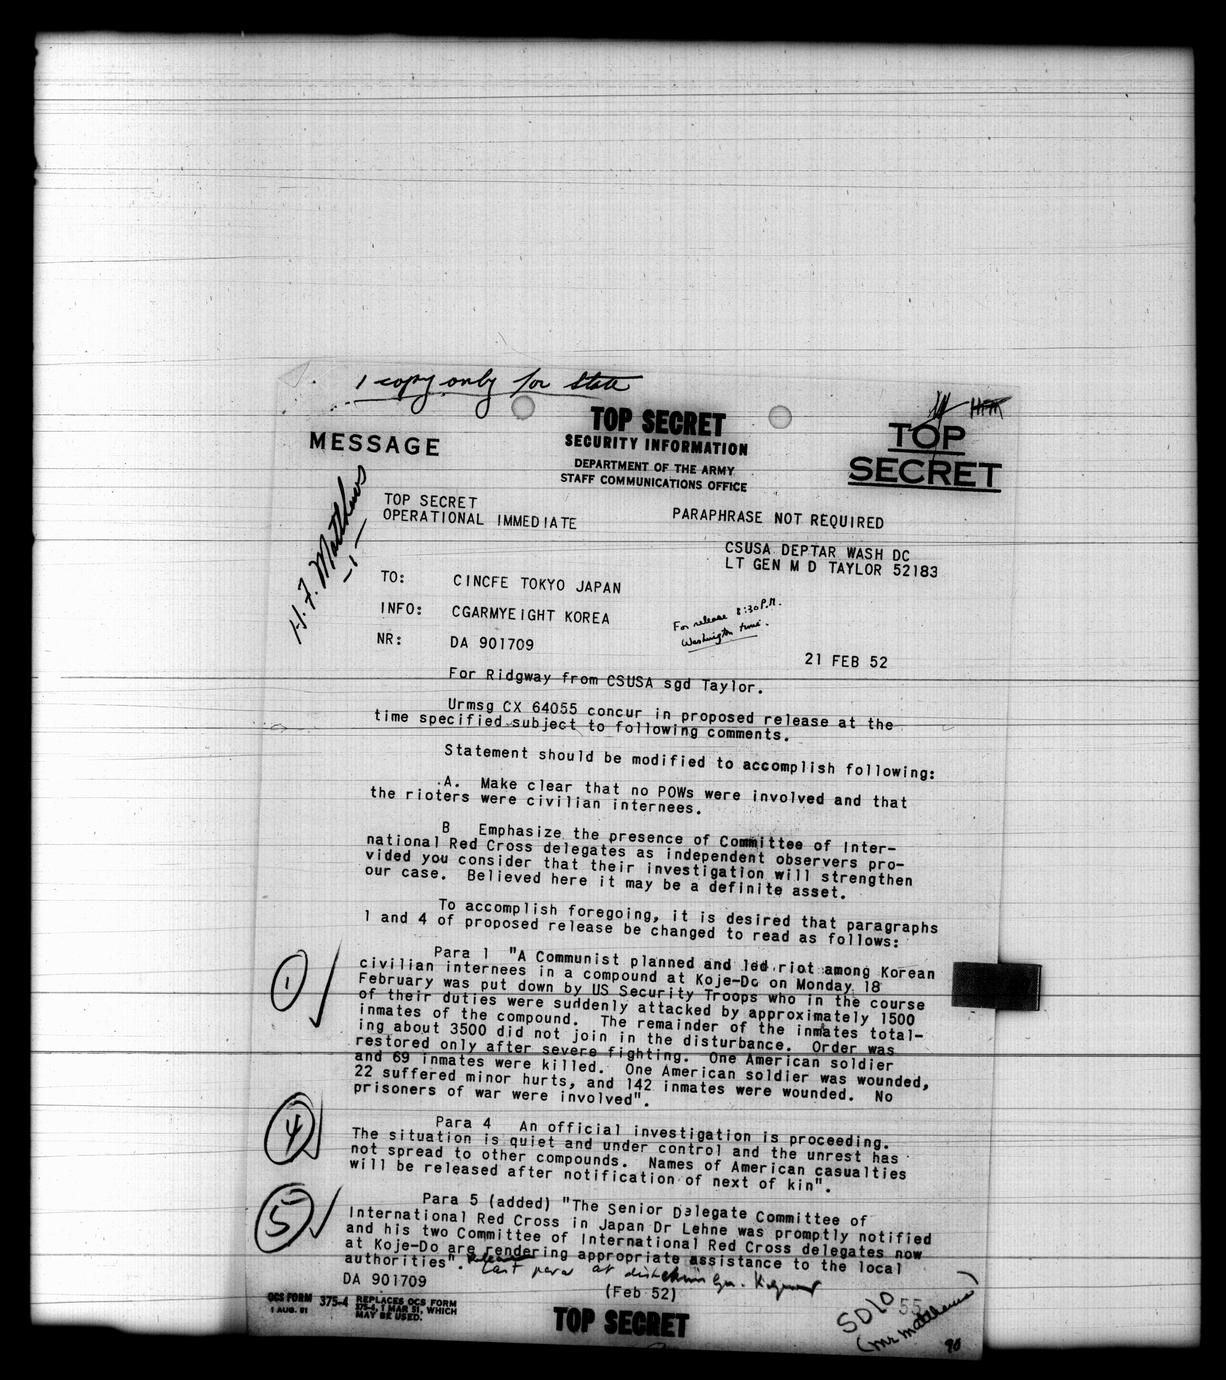 1 copy only for State
TOP SECRET
SECURITY INFORMATION
MESSAGE
DEPARTMENT OF THE ARMY
STAFF COMMUNICATIONS OFFICE
HFM
TOP
SECRET
H. F. Matthews
-1-
TOP SECRET
OPERATIONAL IMMEDIATE
PARAPHRASE NOT REQUIRED
CSUSA DEPTAR WASH DC
LT GEN M D TAYLOR 52183
TO: CINCFE TOKYO JAPAN
INFO: CGARMYEIGHT KOREA
For release 8:30 P.M.
Washington time.
NR: DA 901709
21 FEB 52
For Ridgway from CSUSA sgd Taylor.
Urmsg CX 64055 concur in proposed release at the
time specified subject to following comments.
Statement should be modified to accomplish following:
A. Make clear that no POWs were involved and that
the rioters were civilian internees.
B Emphasize the presence of Committee of Inter-
national Red Cross delegates as independent observers pro-
vided you consider that their investigation will strengthen
our case. Believed here it may be a definite asset.
To accomplish foregoing, it is desired that paragraphs
1 and 4 of proposed release be changed to read as follows:
1
Para 1 "A Communist planned and led riot among Korean
civilian internees in a compound at Koje-Do on Monday 18
February was put down by US Security Troops who in the course
of their duties were suddenly attacked by approximately 1500
inmates of the compound. The remainder of the inmates total-
ing about 3500 did not join in the disturbance. Order was
restored only after severe fighting. One American soldier
and 69 inmates were killed. One American soldier was wounded,
22 suffered minor hurts, and 142 inmates were wounded. No
prisoners of war were involved".
4
Para 4 An official investigation is proceeding.
The situation is quiet and under control and the unrest has
not spread to other compounds. Names of American casualties
will be released after notification of next of kin".
5
Para 5 (added) "The Senior Delegate Committee of
International Red Cross in Japan Dr Lehne was promptly notified
and his two Committee of International Red Cross delegates now
at Koje-Do are rendering appropriate assistance to the local
authorities". Release last para at discretion Gen. Ridgway
DA 901709
(Feb 52)
OCS FORM 375-4 REPLACES OCS FORM
1 AUG. 51 375-4, 1 MAR 51, WHICH
MAY BE USED.
TOP SECRET
SDLO
55
(Mr Matthews)
90